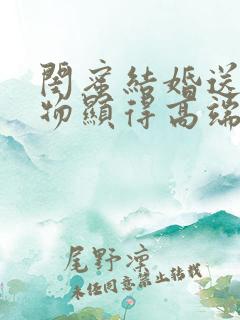 閨蜜結婚送
物顯得高端
尾野凛
未经同意禁止转载